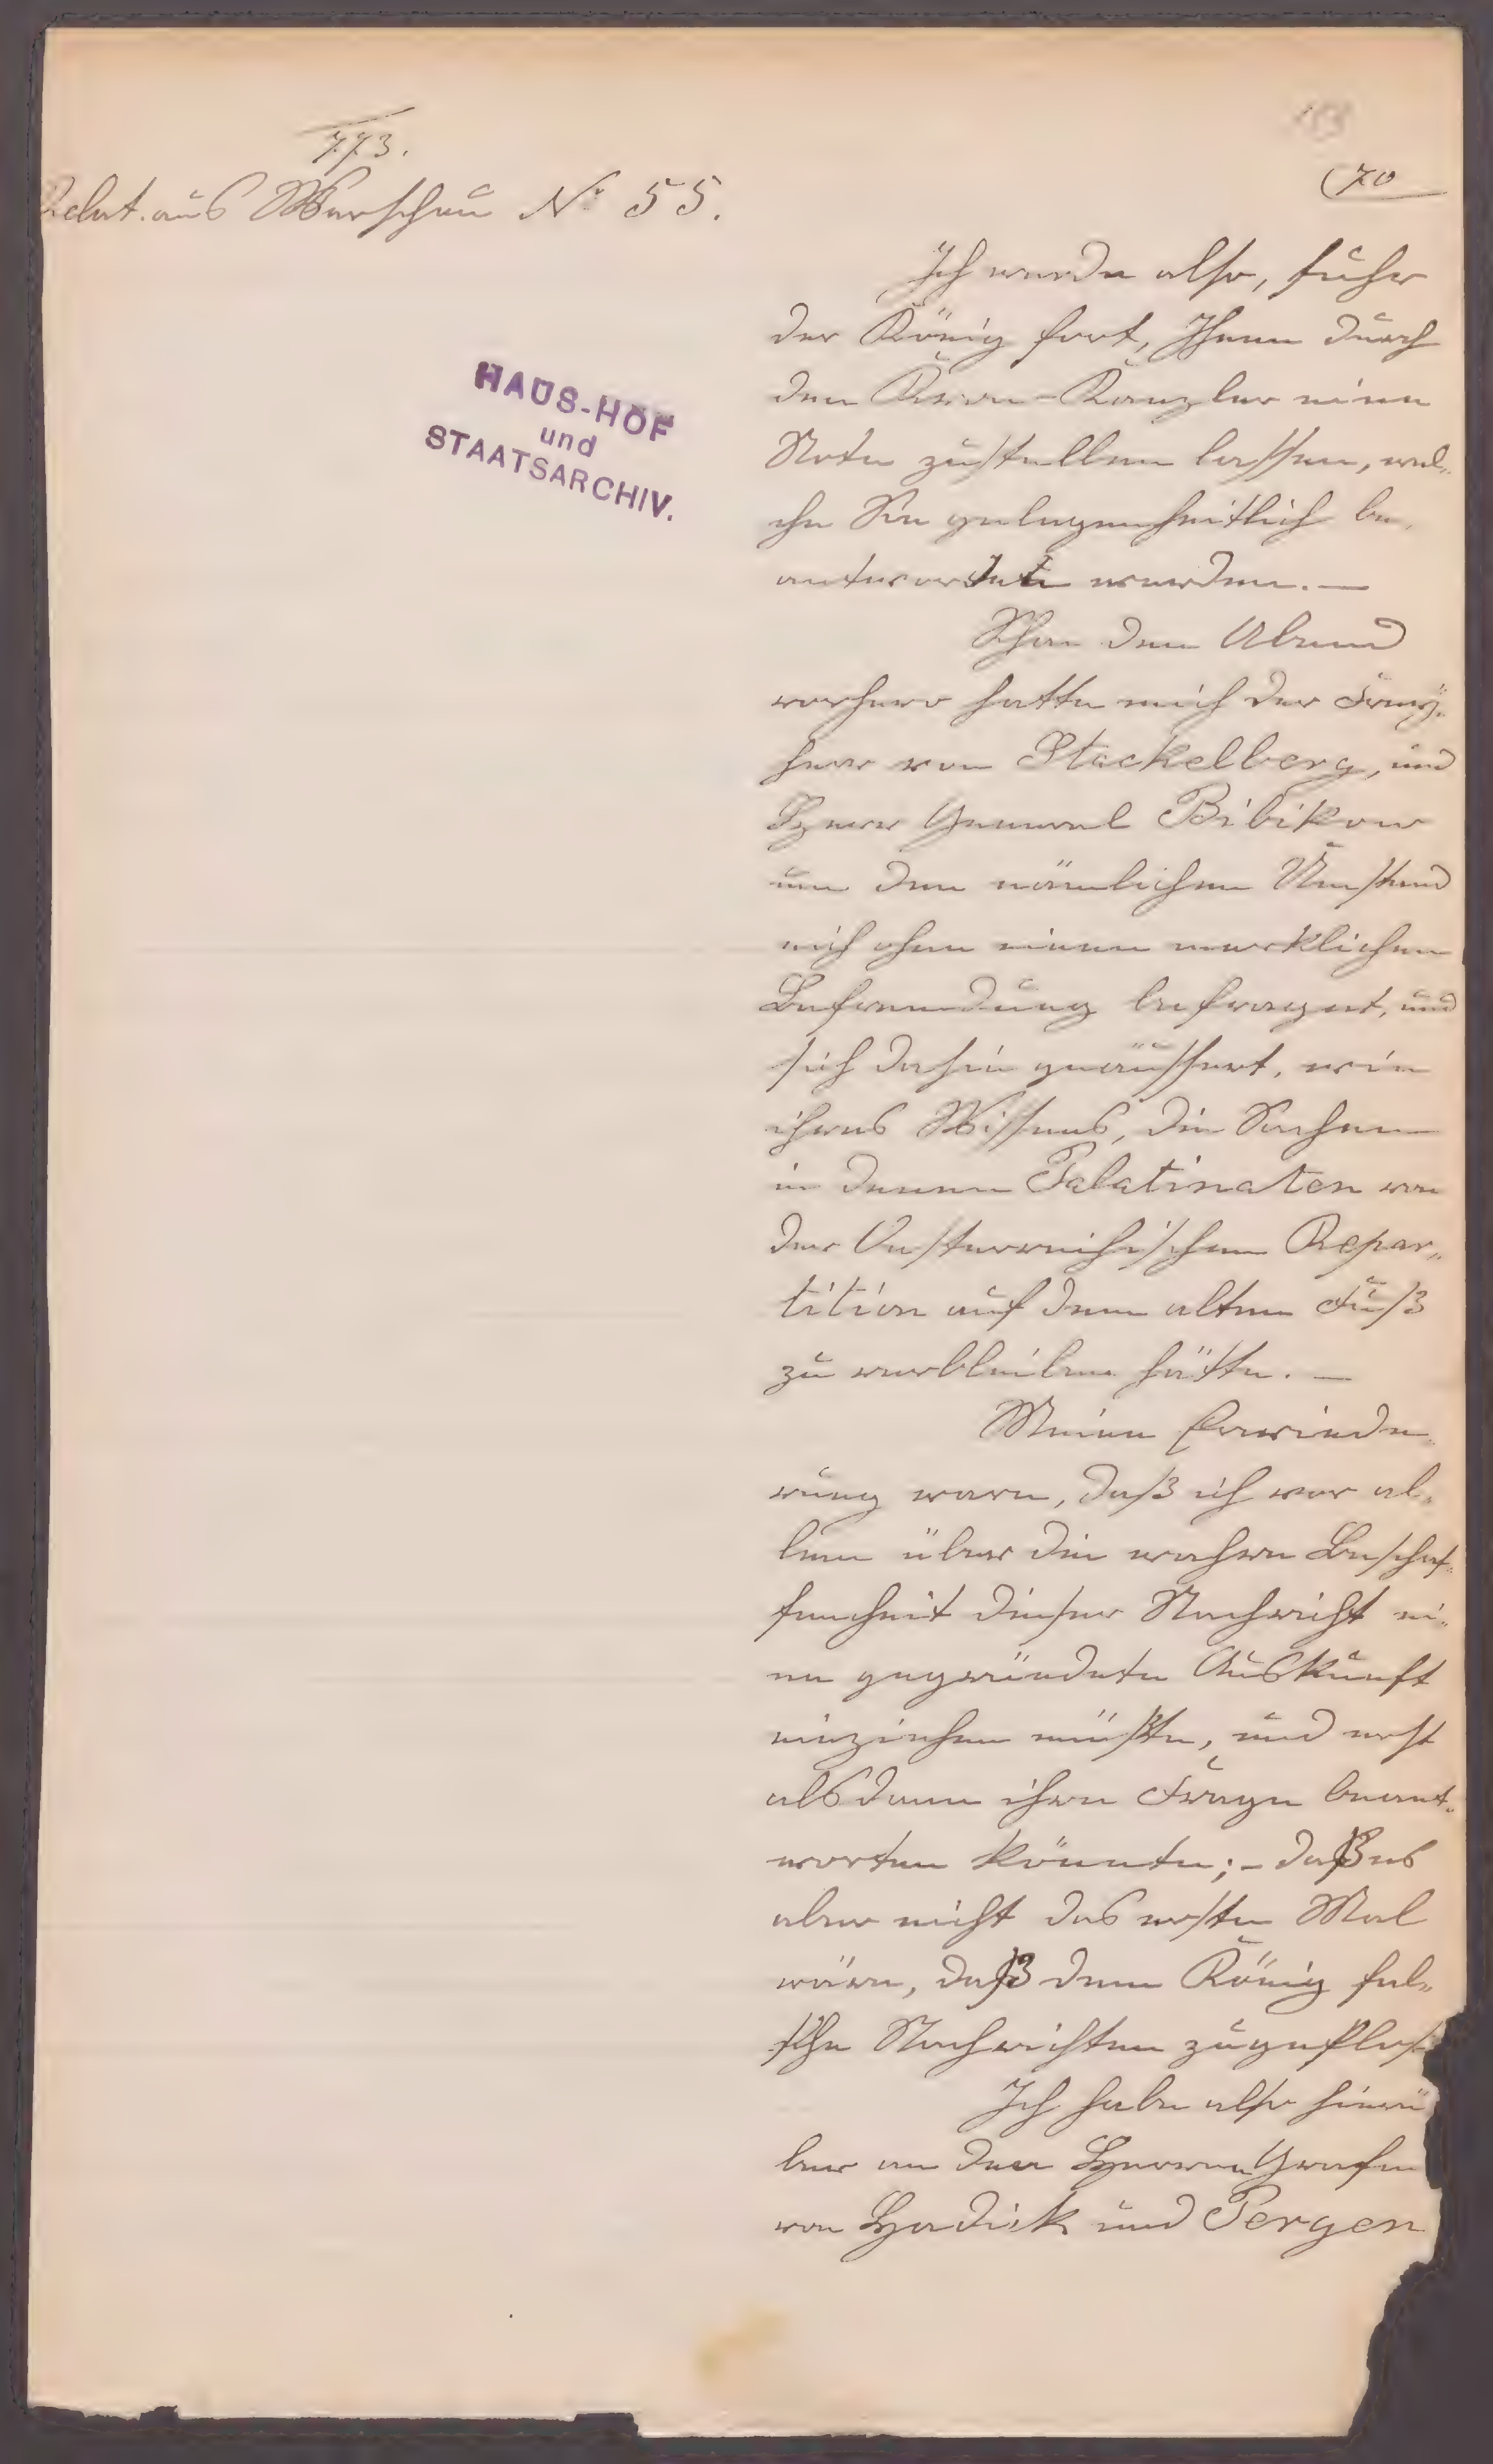 773.
Relat. aus Warschau No 55.
153
(70
HAUS-HOF
und
STAATSARCHIV.
Ich werde also, fuhr
der König fort, Ihnen durch
den Kron-Kanzler eine
Note zustellen lassen, wel„
che Sie gelegenheitlich be„
antworten werden. —
Schon den Abend
vorhero hatte mich der Frey„
herr von Stackelberg, und
Herr General Bibikow
um den nämlichen Umstand
nich ohne einen merklichen
Befremdung befraget, und
sich dahin geäussert, wie
ihres Wissens, die Sachen
in denen Palatinaten von
der Oesterreichischen Repar„
tition auf dem alten Fuß
zu verbleiben hätte. —
Meine Erwiede„
rung ware, daß ich vor al„
lem über die wahre Beschaf„
fenheit dieser Nachricht ei„
ne gegründete Auskunft
einziehen müßte, und erst
alsdann ihre Frage beant„
worten könnte; - daß es
aber nicht das erste Mal
wäre, daß dem König fal„
sche Nachrichten zugeflos
Ich habe also hierü
ber an den Herren Grafen
von Hadick und Pergen